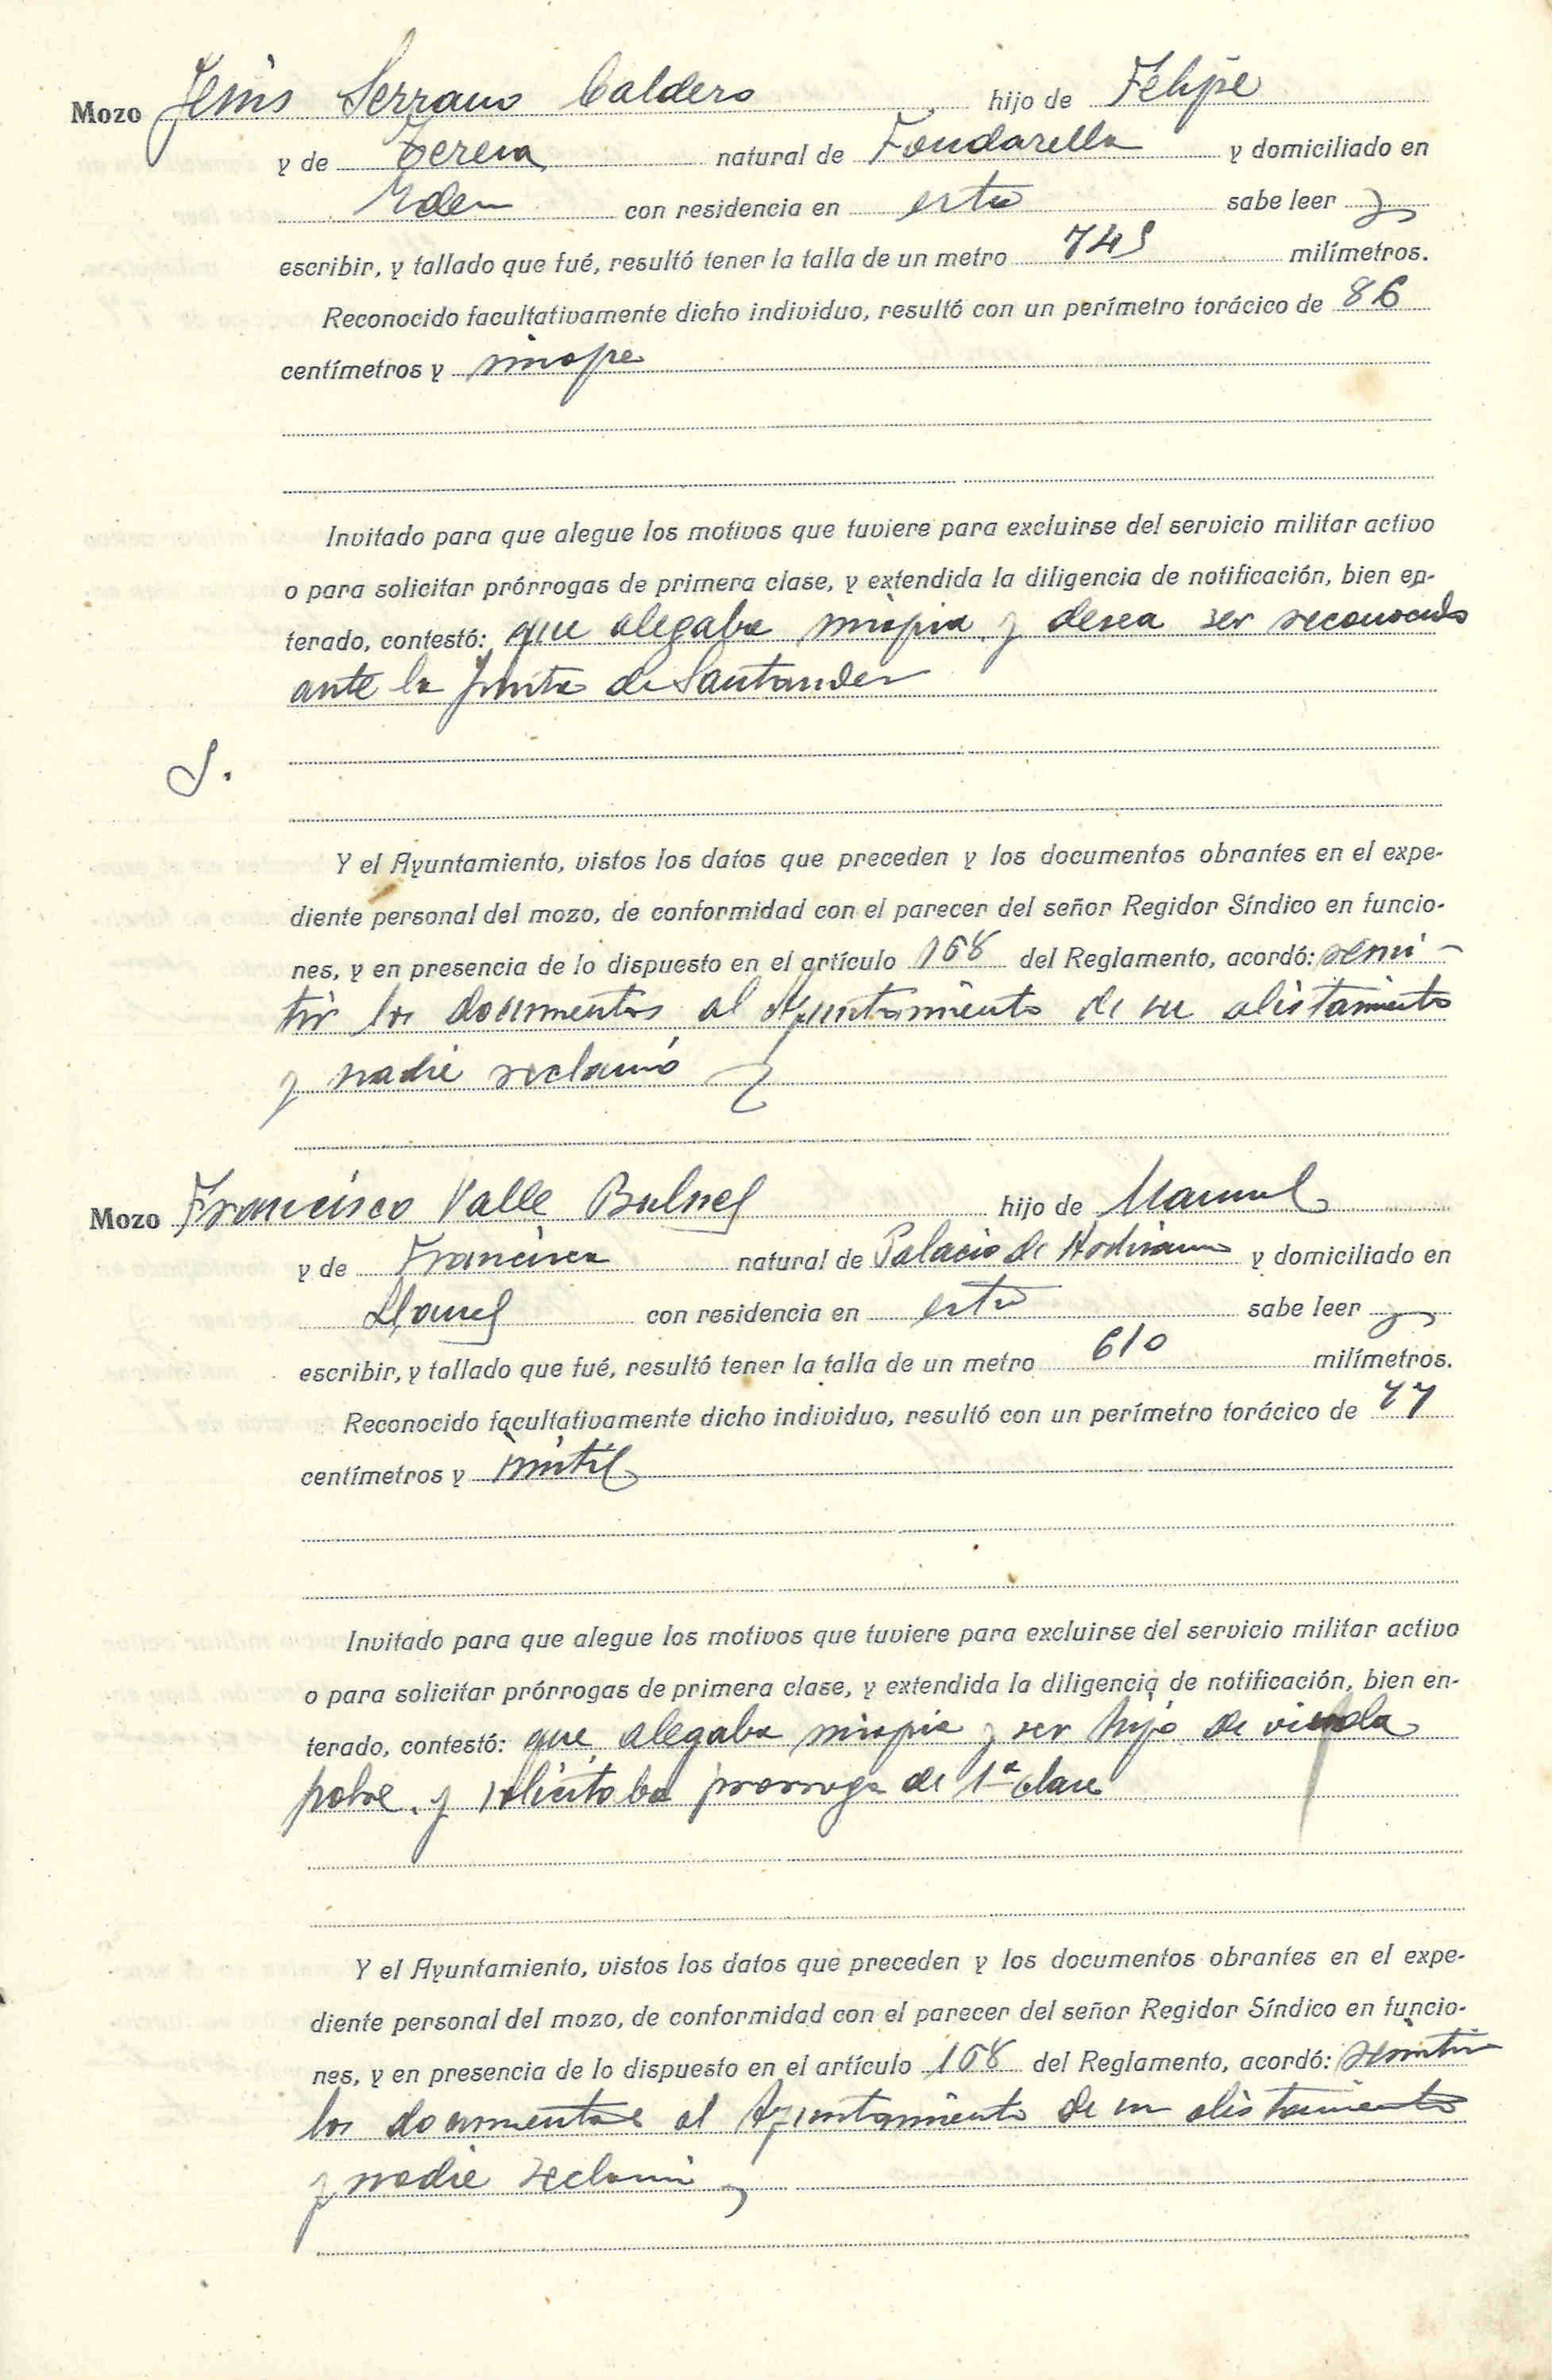 Mozo Jesús Serrano Caldero hijo de Felipe
y de Teresa natural de Fondarella y domiciliado en
Idem con residencia en esta sabe leer y
escribir, y tallado que fué, resultó tener la talla de un metro 745 milímetros.
Reconocido facultativamente dicho individuo, resultó con un perímetro torácico de 86
centímetros y miope
Invitado para que alegue los motivos que tuviere para excluirse del servicio militar activo
o para solicitar prórrogas de primera clase, y extendida la diligencia de notificación, bien en-
terado, contestó: que alegaba miopia y desea ser reconocido
ante la Junta de Santander
S.
Y el Ayuntamiento, vistos los datos que preceden y los documentos obrantes en el expe-
diente personal del mozo, de conformidad con el parecer del señor Regidor Síndico en funcio-
nes, y en presencia de lo dispuesto en el artículo 168 del Reglamento, acordó: remi-
tir los documentos al Ayuntamiento de su alistamiento
y nadie reclamó
Mozo Francisco Valle Bulnes hijo de Manuel
y de Francisca natural de Palacio de y domiciliado en
Llanes con residencia en esta sabe leer y
escribir, y tallado que fué, resultó tener la talla de un metro 610 milímetros.
Reconocido facultativamente dicho individuo, resultó con un perímetro torácico de 77
centímetros y inútil
Invitado para que alegue los motivos que tuviere para excluirse del servicio militar activo
o para solicitar prórrogas de primera clase, y extendida la diligencia de notificación, bien en-
terado, contestó: que alegaba miopia y ser hijo de viuda
pobre y solicitaba prorroga de 1ª clase
Y el Ayuntamiento, vistos los datos que preceden y los documentos obrantes en el expe-
diente personal del mozo, de conformidad con el parecer del señor Regidor Síndico en funcio-
nes, y en presencia de lo dispuesto en el artículo 168 del Reglamento, acordó: remitir
los documentos al Ayuntamiento de su alistamiento
y nadie reclamó